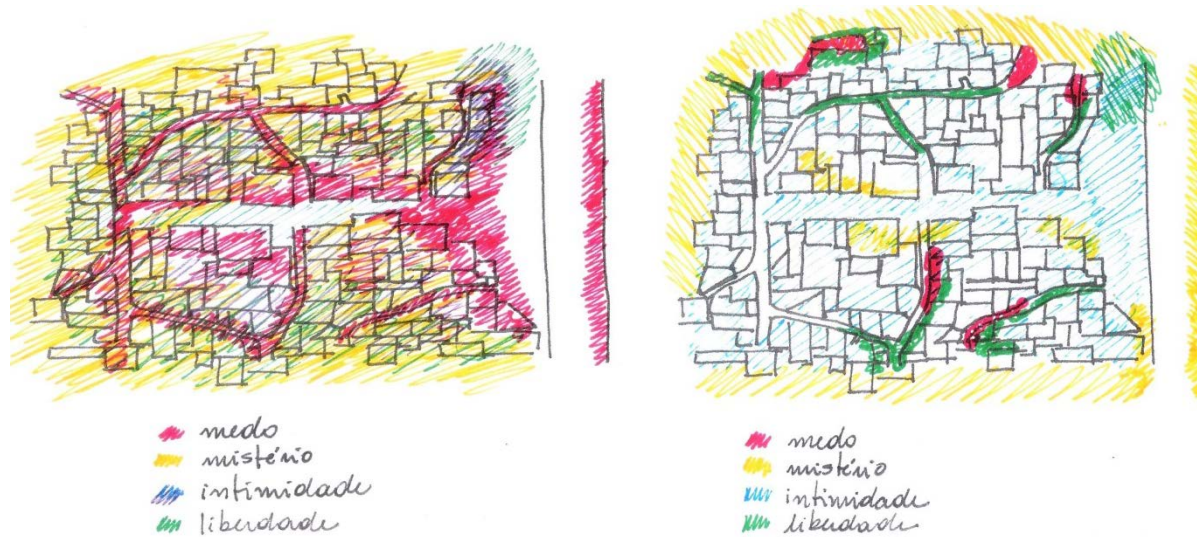 medo
mistério
intimidade
liberdade
medo
mistério
intimidade
liberdade